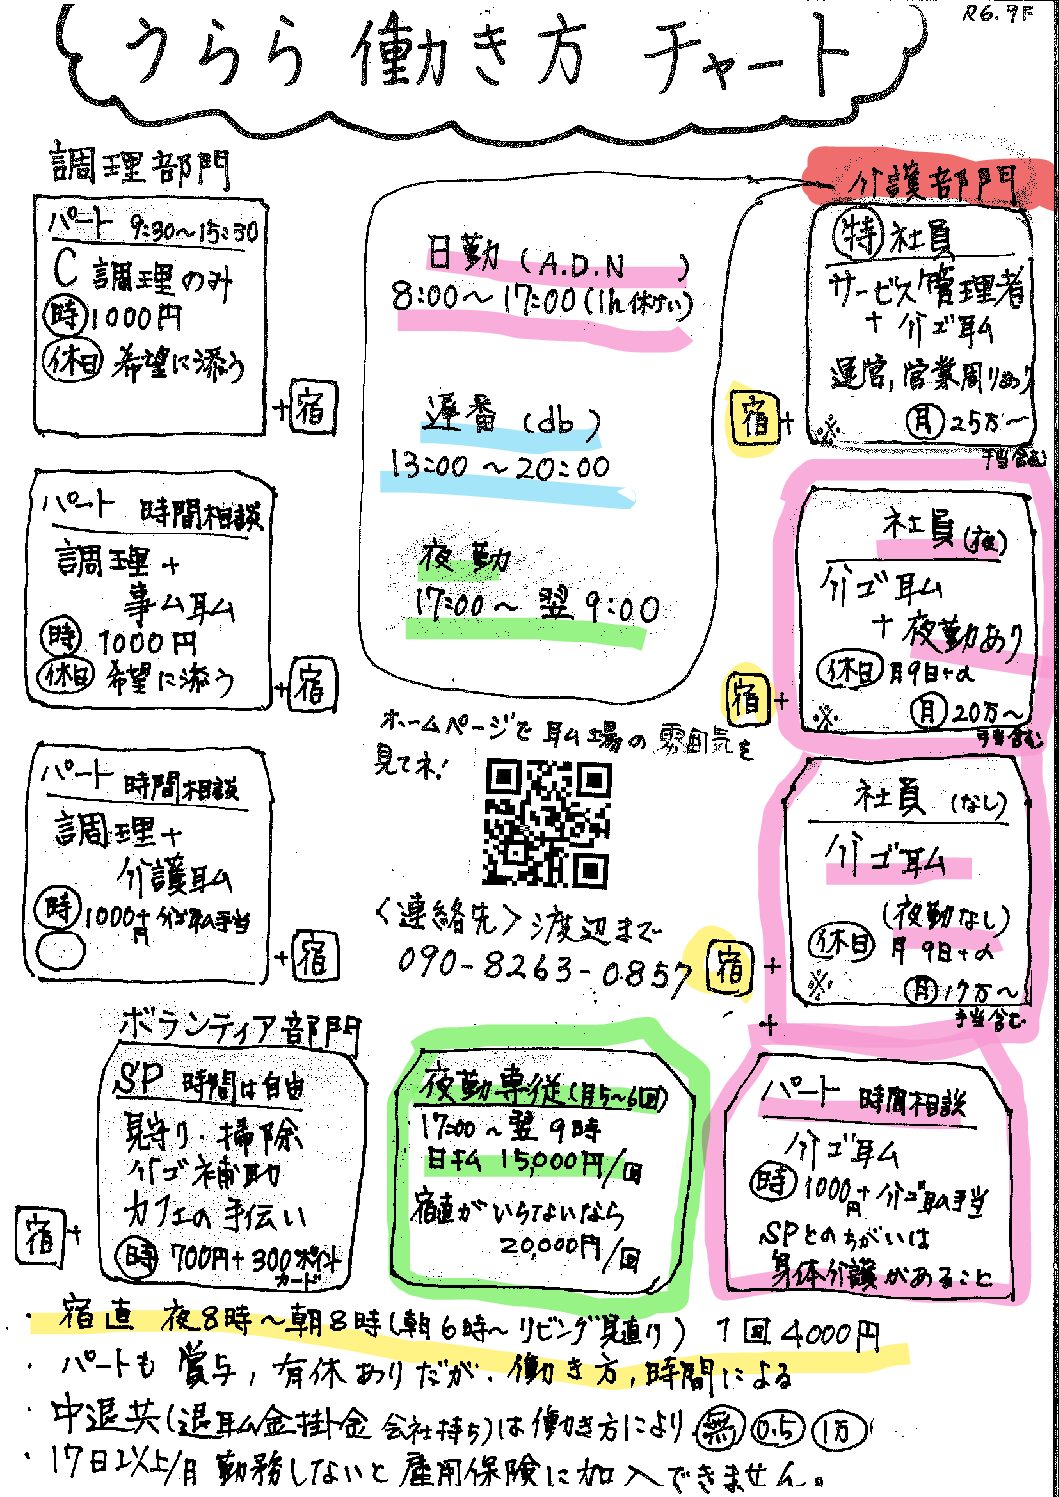 R6.9F
うらら 働き方 チャート
調理部門
パート 9:30～15:30
C 調理のみ
時 1000円
休日 希望に添う
+宿
パート 時間相談
調理+
事ム耳ム
時 1000円
休日 希望に添う
+宿
パート 時間相談
調理+
介護耳ム
時 1000円+介ゴ耳ム手当
+宿
日勤 (A.D.N )
8:00～17:00(1h休けい)
遅番 (db)
13:00～20:00
夜勤
17:00～翌9:00
ホームページで耳ム場の雰囲気を
見てネ!
〈連絡先〉渡辺まで
090-8263-0857
介護部門
特 社員
サービス管理者
+介ゴ耳ム
運営,営業周りあり
※ 月 25万～
手当含む
宿+
社員(夜)
介ゴ耳ム
+夜勤あり
休日 月9日+α
※ 月 20万～
手当含む
宿+
社員 (なし)
介ゴ耳ム
(夜勤なし)
休日 月9日+α
※ 月 17万～
手当含む
宿+
+
パート 時間相談
介ゴ耳ム
時 1000円+介ゴ耳ム手当
SPとのちがいは
身体介護があること
ボランティア部門
SP 時間は自由
見守り・掃除
介ゴ補助
カフェの手伝い
時 700円+300ポイント
カード
宿+
夜勤専従(月5～6回)
17:00～翌9時
日払 15,000円/回
宿直がいらないなら
20,000円/回
・宿直 夜8時～朝8時(朝6時～リビング見直り) 1回4000円
・パートも賞与,有休ありだが、働き方,時間による
・中退共(退耳ム金掛金 会社持ち)は働き方により 無 0.5 1万
・17日以上/月 勤務しないと雇用保険に加入できません。